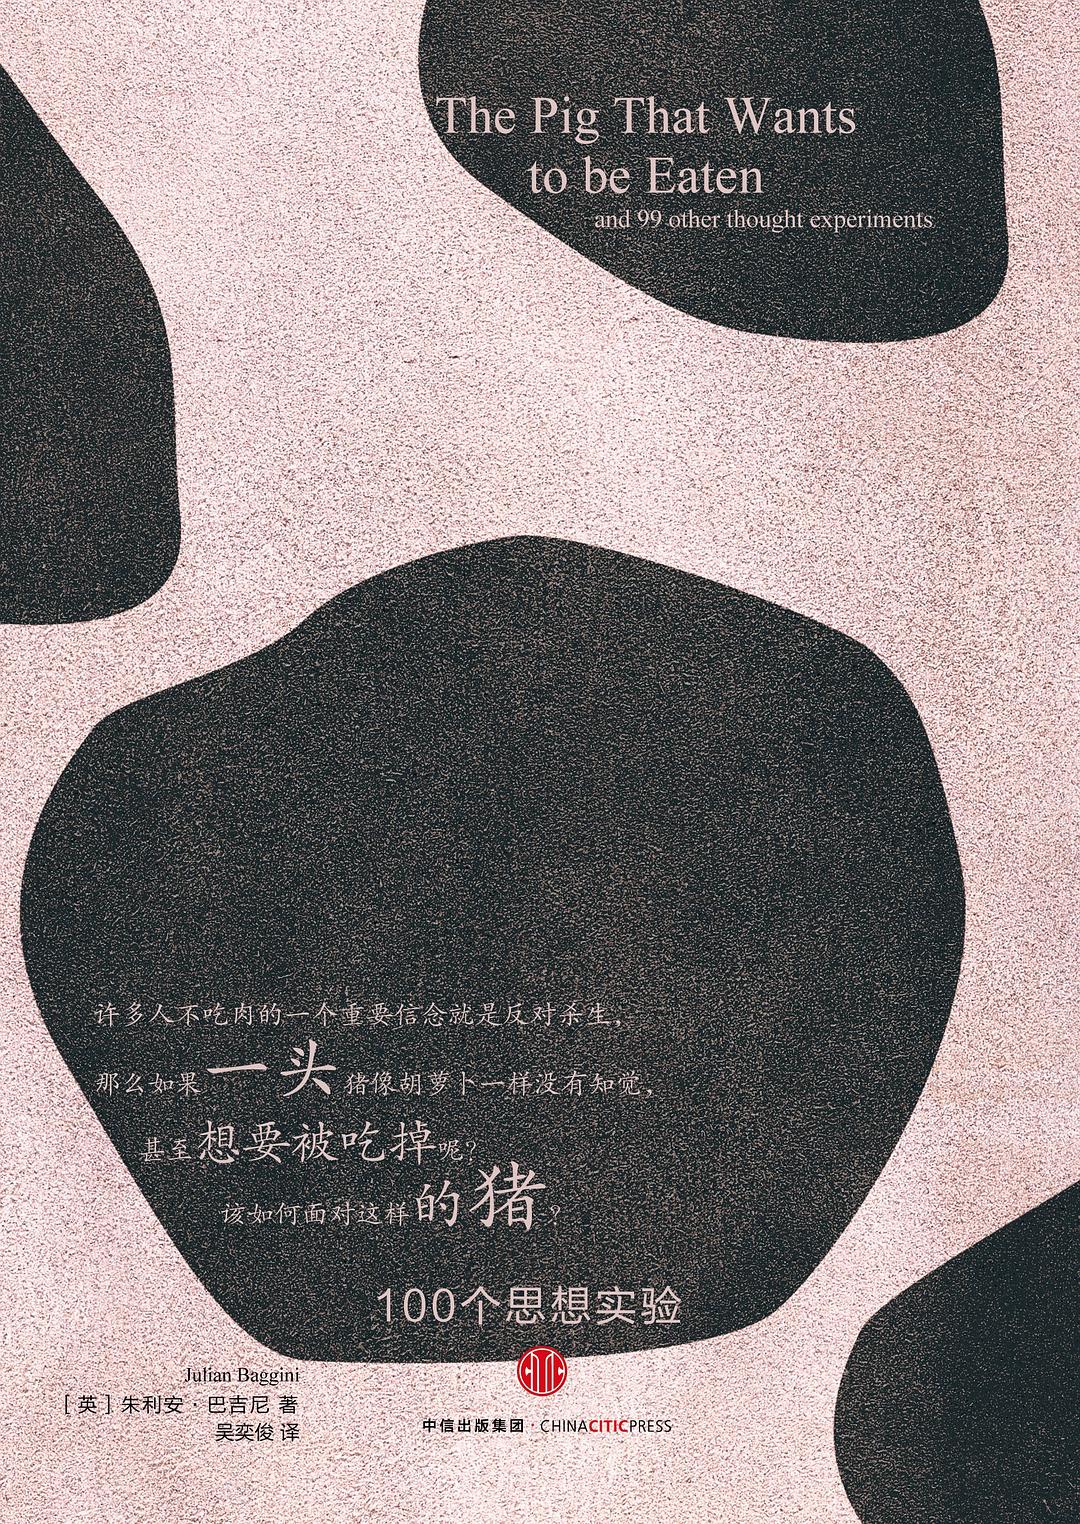 The Pig That Wants
to be Eaten
and 99 other thought experiments
许多人不吃肉的一个重要信念就是反对杀生，
那么如果一头猪像胡萝卜一样没有知觉，
甚至想要被吃掉呢？
该如何面对这样的猪？
100个思想实验
Julian Baggini
［英］朱利安·巴吉尼 著
吴奕俊 译
中信出版集团·CHINACITICPRESS